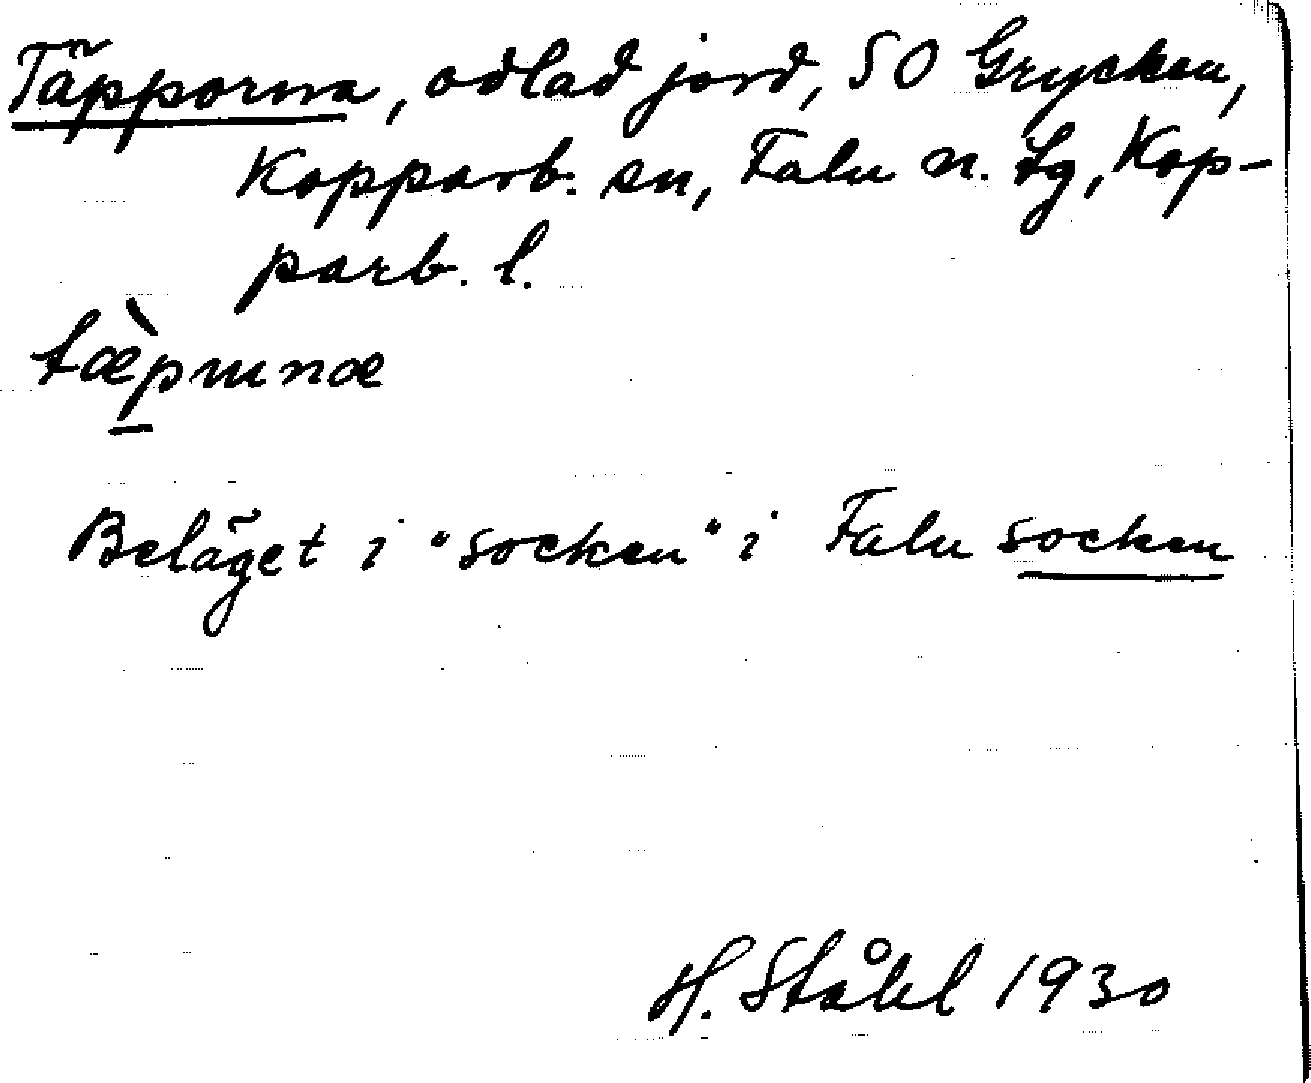 Täpporna, odlad jord, SO Grycken,
Kopparb. sn, Falu n. tg, Kop-
parb. l.
tæ̀p̠runæ
Beläget i "socken" i Falu socken
H. Ståhl 1930